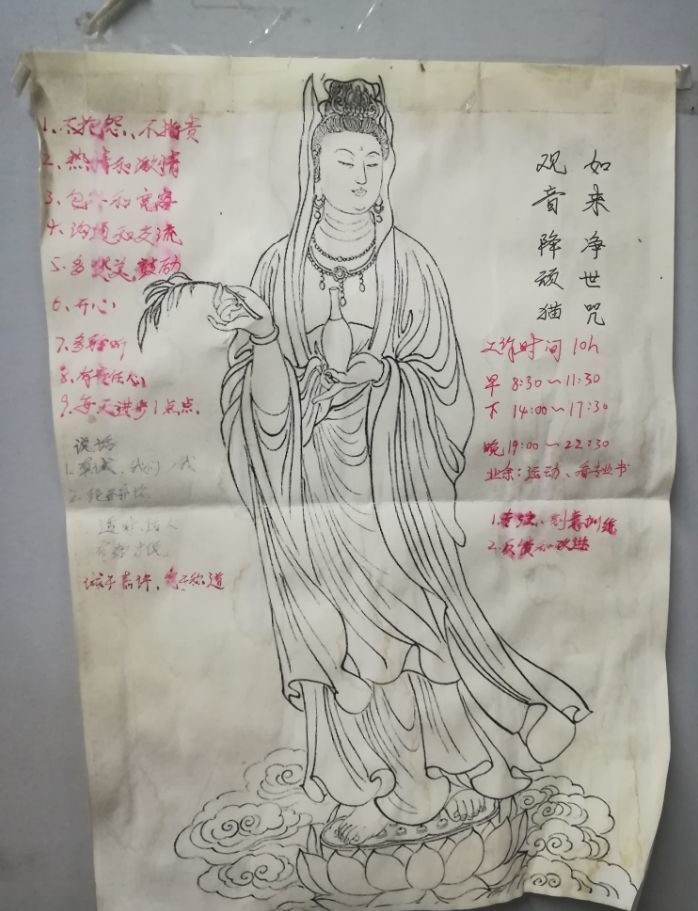 1、不抱怨、不指责
2、热情和激情
3、包容和宽容
4、沟通和交流
5、多赞美、鼓励
6、开心
7、多聆听
8、有责任心
9、每天进步1点点.
说话
如来净世咒
观音降顽猫
工作时间 10h
早 8:30~11:30
下 14:00~17:30
晚 19:00~22:30
业余：运动、看专业书
1.专注、刻意训练
2.反馈和改进